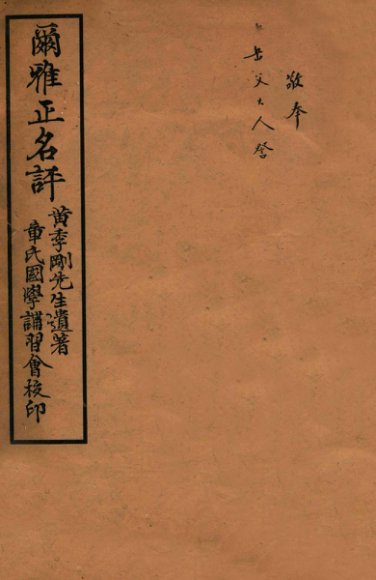 敬奉
岳父大人
爾雅正名評
黃季剛先生遺著
章氏國學講習會校印